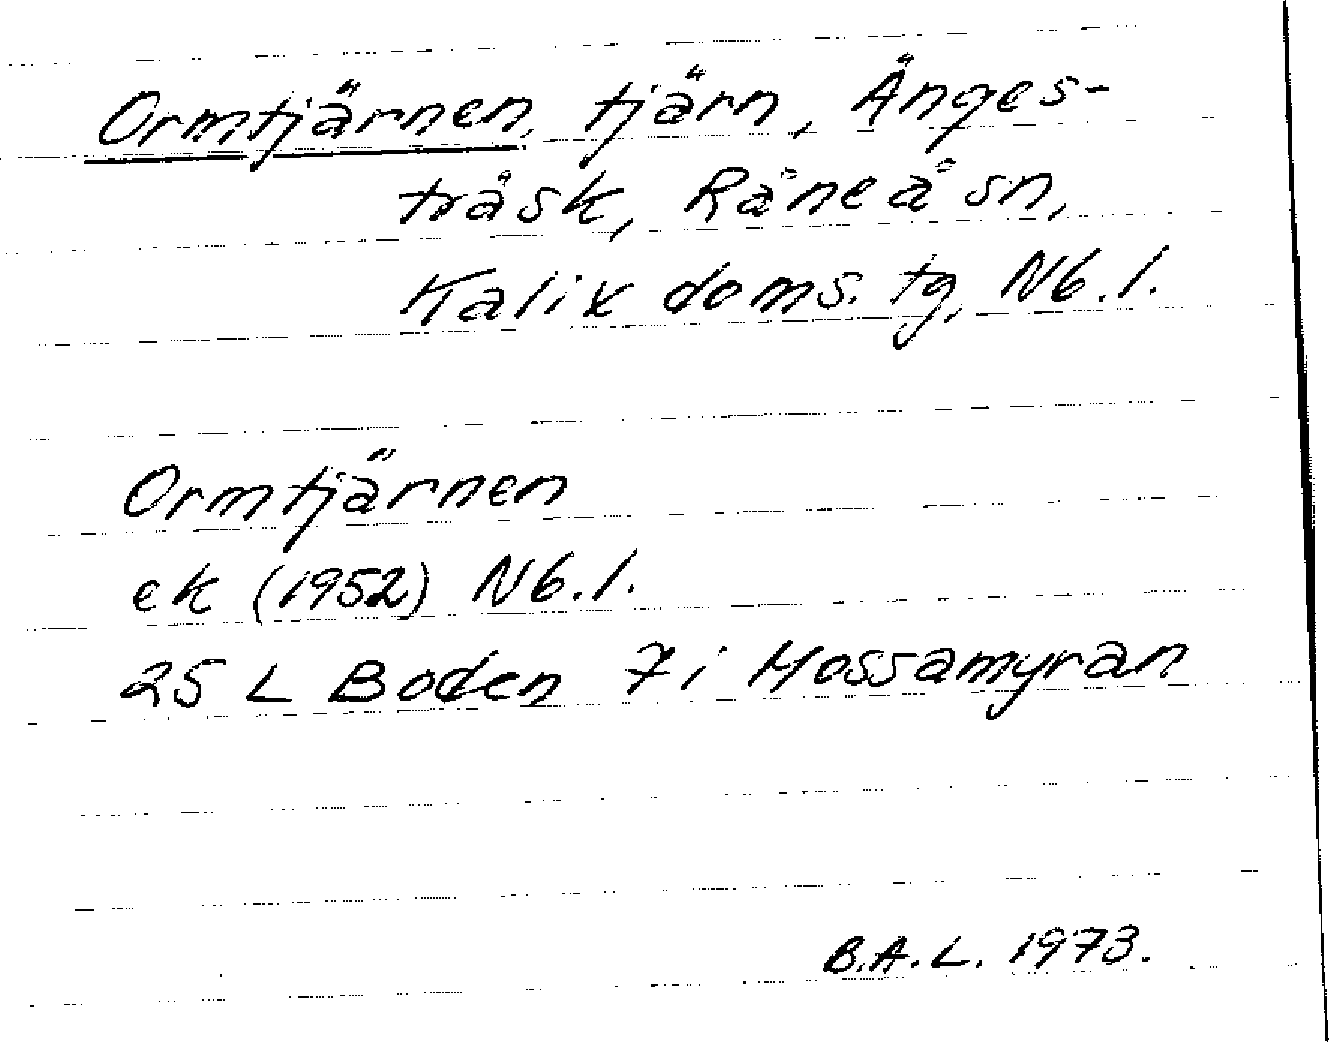 Ormtjärnen, tjärn, Ånges-
tråsk, Råneå sn,
Kalix doms. tg, Nb. l.
Ormtjärnen
ek (1952) Nb. l.
25 L Boden 7i Mossamyran
B.A.L. 1973.